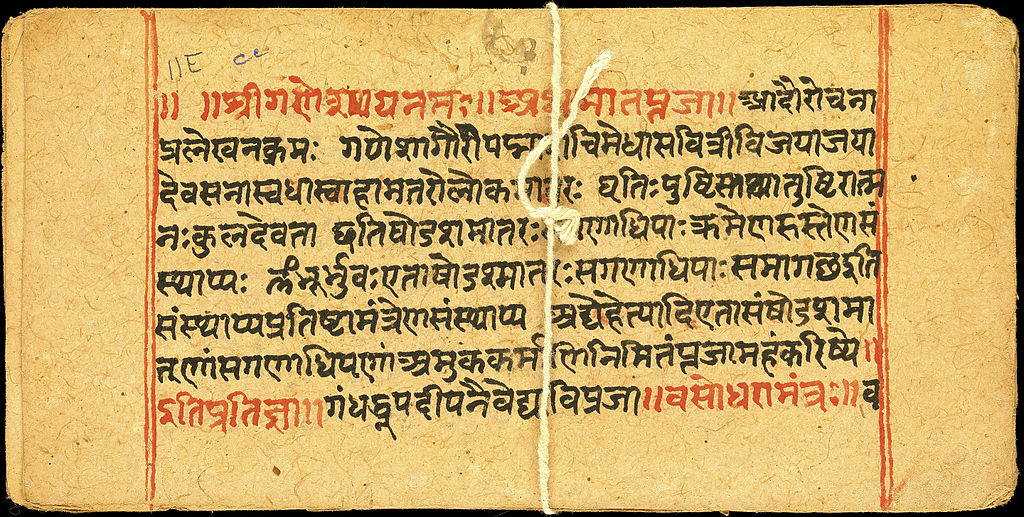 ११E cc
॥ ॥श्रीगणेशायनमः॥ अथ मातपूजा॥ आदौरोचना
प्रलेखनक्रमः गणेशागौरीपद्मा चिमेधासवित्रीविजयाजया
देवसनास्वधास्वाहामतरोलोक धृतिःपुष्टि तुष्टिरात्म
नःकुलदेवता धृतिषोडशमातरः गणाधिपाःक्रमेणहस्तेणसं
स्थाप्यः ॐभूर्भुवःएताषोडशमातरःसगणाधिपाःसमागछइति
संस्थाप्यप्रतिष्टामंत्रेणसंस्थाप्य अद्येहेत्यादिएतासंषोडशमा
तृणांसगणाधिपणांअमुककर्मणिनिमितंपूजामहंकरिष्ये॥
इतिप्रतिज्ञा॥गंधद्धूपदीपनैवैद्यविपूजा॥वसोधरामंत्रः॥व